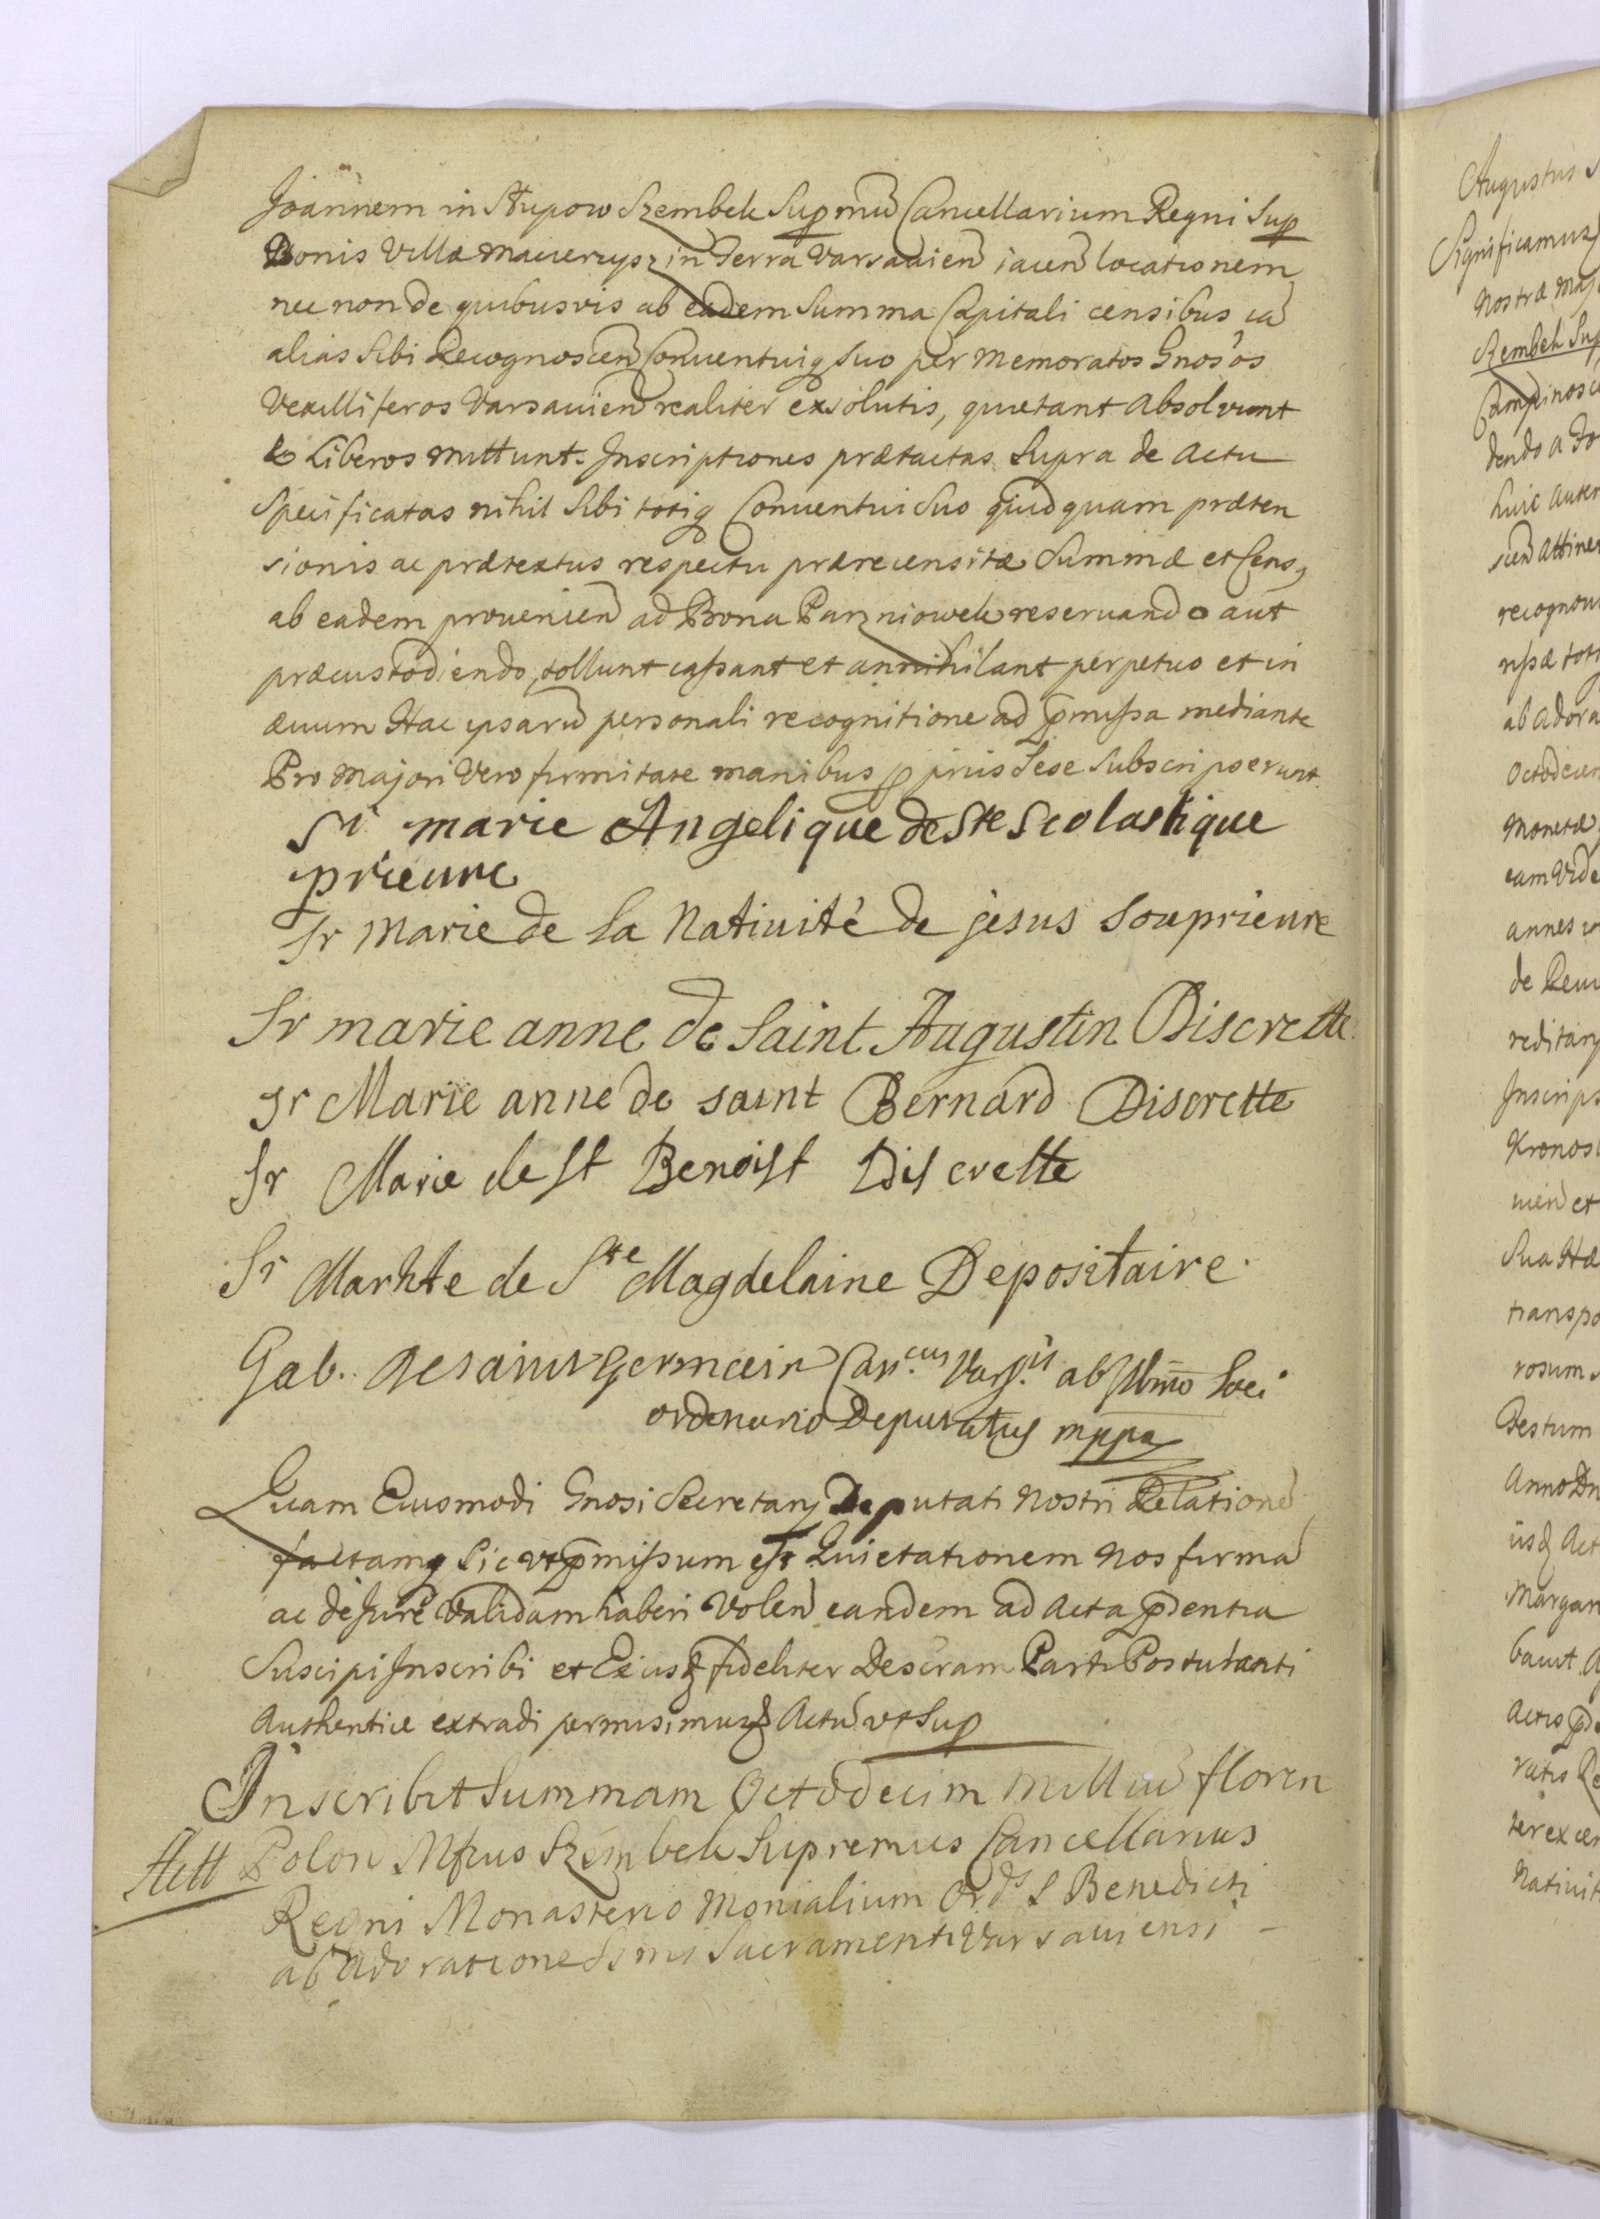 Joannem in Słupow Szembek Supmu Cancellarium Regni Sup
Bonis Villæ Macierzysz in Terra Varsavien iacen locationem
nec non de quibusvis ab eadem Summa Capitali censibus ia
alias sibi Recognoscen Conventuiq suo per memoratos Gnosos
Vexilliferos Varsavien realiter exsolutis, quietant absolvunt
& Liberos mittunt. Inscriptiones prætactas supra de actu
specificatas nihil sibi totiq Conventui suo quidquam præten
sionis ac prætextus respectu prærecensitæ Summæ et Cens,
ab eadem provenien ad Bona Parzniowek reservando aut
præcustodiendo, tollunt cassant et annihilant perpetuo et in
ævum Hac ipsaru personali recognitione ad pmissa mediante
Pro majori Vero firmitate manibus pprijs sese subscripserunt.
Sr marie Angelique de Ste Scolastique
prieure
Sr Marie de la Nativité de jesus souprieure
Sr marie anne de saint Augustin Discrette
sr Marie anne de saint Bernard Discrette
Sr Marie de St Benoist Discrette
Sr Markte de Ste Magdelaine Depositaire.
Gab. Desaint Germain Can.cus Vars.is ab Illmo Loci
ordinario Deputatus mppa
Quam Eiusmodi Gnosi Secretarij Deputati Nostri Relatione
factamq sic vt pmissum est Quietationem Nos firma
ac de Jure Validam haberi Volen eandem ad Acta pdentia
Suscipi Inscribi et Exiisq fideliter Descram Parti Postulanti
Authentice extradi permisimus Actu vt Sup
Inscribit Summam Octodecim Milliu floren
Polon Mfcus Szembek Supremus Cancellarius
Regni Monasterio Monialium Ord. S Benedicti
ab Adoratione Ssmi Sacramenti Varsaviensi
Augustus
Significamus
Nostræ Maj
Szembek Sup
dendo a
huic autem
scen attine
ab adora
Monetæ
eam Vide
de
Inscrips
vien et
Sua Hæ
transpo
rosum
Testum
Anno Dn
iisq Act
Margar
Actis pd
Nativit